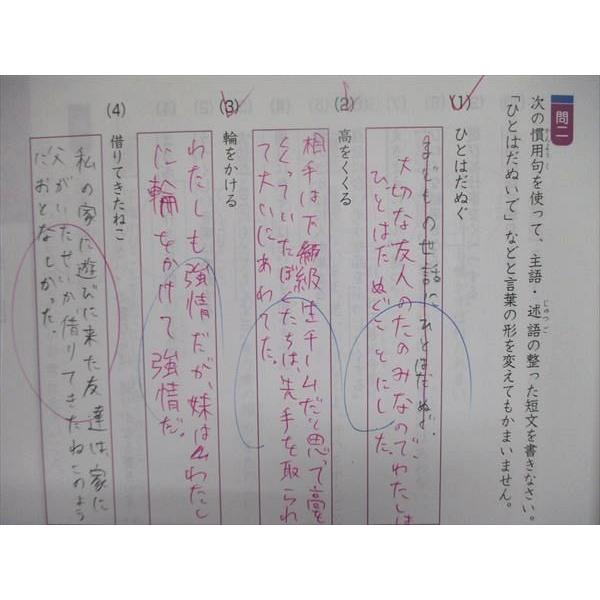 問二
次の慣用句を使って、主語・述語の整った短文を書きなさい。
「ひとはだぬいで」などと言葉の形を変えてもかまいません。
(1) ひとはだぬぐ
子どもの世話にひとはだぬぐ。
大切な友人のたのみなので、わたしは
ひとはだぬぐことにした。
(2) 高をくくる
相手は下級生チームだと思って高を
くくっていたぼくたちは、先手を取られ
て大いにあわてた。
(3) 輪をかける
わたしも強情だが、妹はわたし
に輪をかけて強情だ。
(4) 借りてきたねこ
私の家に遊びに来た友達は、家に
父がいたせいか借りてきたねこのよう
だおとなしかった。